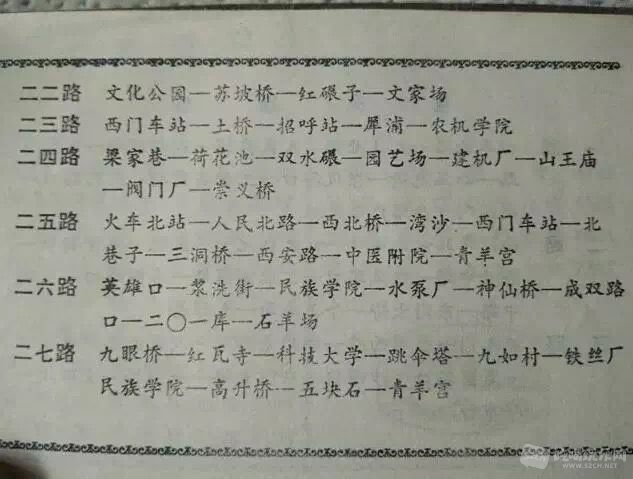 二二路 文化公园—苏坡桥—红碾子—文家场
二三路 西门车站—土桥—招呼站—犀浦—农机学院
二四路 梁家巷—荷花池—双水碾—园艺场—建机厂—山王庙
—阀门厂—崇义桥
二五路 火车北站—人民北路—西北桥—湾沙—西门车站—北
巷子—三洞桥—西安路—中医附院—青羊宫
二六路 英雄口—浆洗街—民族学院—水泵厂—神仙桥—成双路
口—二〇一库—石羊场
二七路 九眼桥—红瓦寺—科技大学—跳伞塔—九如村—铁丝厂
民族学院—高升桥—五块石—青羊宫